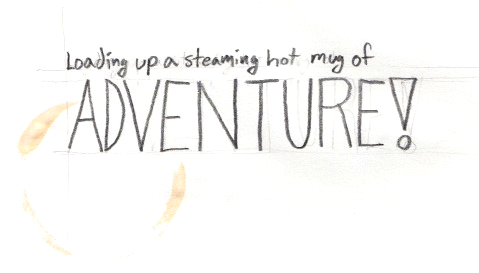 Loading up a steaming hot mug of
ADVENTURE!